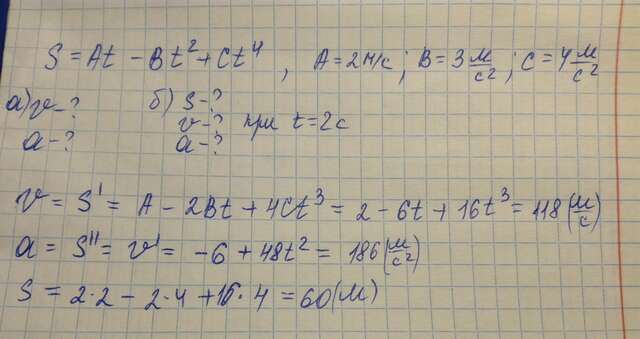 S = At - Bt² + Ct⁴, A = 2 м/с; B = 3 м/с²; C = 4 м/с²
а) v - ? б) S - ?
v - ? при t = 2с
a - ? a - ?
v = S' = A - 2Bt + 4Ct³ = 2 - 6t + 16t³ = 118 (м/с)
a = S'' = v' = -6 + 48t² = 186 (м/с²)
S = 2·2 - 2·4 + 16·4 = 60 (м)